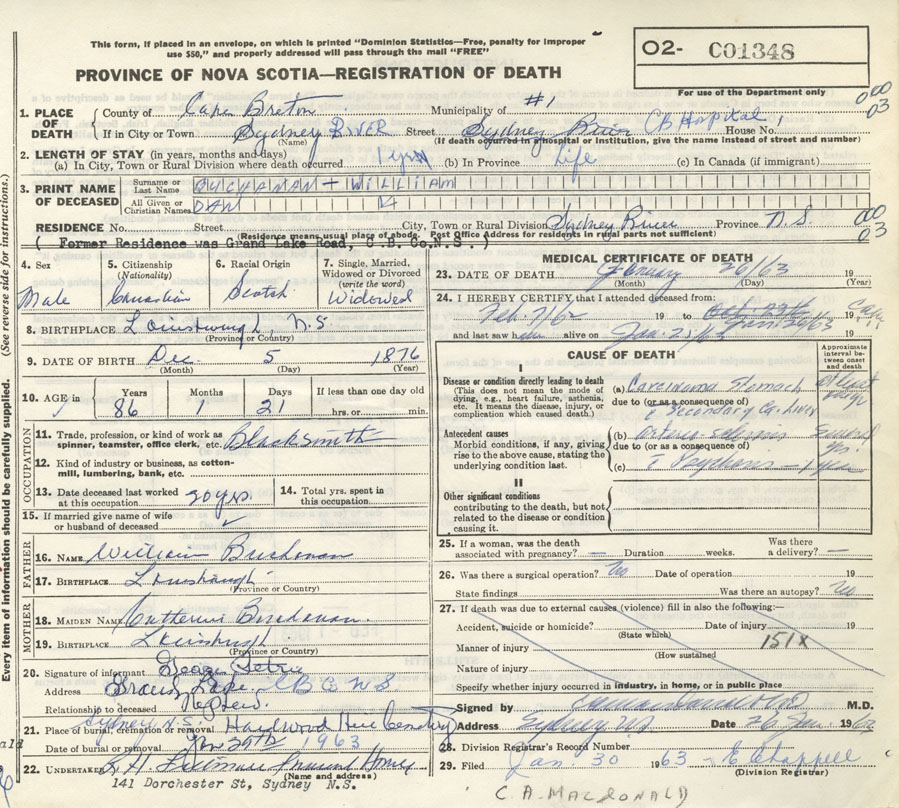 This form, if placed in an envelope, on which is printed "Dominion Statistics—Free, penalty for improper
use $50," and properly addressed will pass through the mail "FREE"
O2- C01348
PROVINCE OF NOVA SCOTIA—REGISTRATION OF DEATH
For use of the Department only
000
03
1. PLACE OF DEATH
County of Cape Breton Municipality of #1
If in City or Town Sydney River Street Sydney River CB Hospital House No.
(Name) (If death occurred in a hospital or institution, give the name instead of street and number)
2. LENGTH OF STAY (in years, months and days)
(a) In City, Town or Rural Division where death occurred 1 yr (b) In Province Life (c) In Canada (if immigrant)
3. PRINT NAME OF DECEASED
Surname or Last Name BUCHANAN — WILLIAM
All Given or Christian Names DAN
RESIDENCE No. Street City, Town or Rural Division Sydney River Province N.S.
000
03
(Residence means usual place of abode. Post Office Address for residents in rural parts not sufficient)
( Former Residence was Grand Lake Road, C.B.Co.N.S. )
4. Sex Male
5. Citizenship (Nationality) Canadian
6. Racial Origin Scotch
7. Single, Married, Widowed or Divorced (write the word) Widowed
8. BIRTHPLACE N.S
(Province or Country)
9. DATE OF BIRTH Dec. 5 1876
(Month) (Day) (Year)
10. AGE in Years 86 Months 1 Days 21 If less than one day old hrs. or min.
OCCUPATION
11. Trade, profession, or kind of work as spinner, teamster, office clerk, etc. Blacksmith
12. Kind of industry or business, as cotton-mill, lumbering, bank, etc.
13. Date deceased last worked at this occupation 20 yrs.
14. Total yrs. spent in this occupation.
15. If married give name of wife or husband of deceased
FATHER
16. NAME William Buchanan
17. BIRTHPLACE
(Province or Country)
MOTHER
18. MAIDEN NAME Catherine Buchanan
19. BIRTHPLACE
(Province or Country)
20. Signature of informant
Address Grand Lake C B Co N S
Relationship to deceased Nephew
Sydney N.S.
21. Place of burial, cremation or removal Hardwood Hill Cemetery
Date of burial or removal Jan 29th 1963
22. UNDERTAKER Funeral Home
(Name and address)
141 Dorchester St, Sydney N.S.
MEDICAL CERTIFICATE OF DEATH
23. DATE OF DEATH 26/63 19
(Month) (Day) (Year)
24. I HEREBY CERTIFY that I attended deceased from:
Feb. 7/62 19 to Jan. 26/63 19
and last saw h alive on Jan. 19
CAUSE OF DEATH
Approximate interval between onset and death
I
Disease or condition directly leading to death
(This does not mean the mode of dying, e.g., heart failure, asthenia, etc. It means the disease, injury, or complication which caused death.)
(a) Carcinoma Stomach
due to (or as a consequence of)
c Secondary Ca. Liver
Antecedent causes
Morbid conditions, if any, giving rise to the above cause, stating the underlying condition last.
(b) Arterio-sclerosis
due to (or as a consequence of)
(c) c Psychosis
II
Other significant conditions
contributing to the death, but not related to the disease or condition causing it.
25. If a woman, was the death associated with pregnancy? — Duration weeks. Was there a delivery? —
26. Was there a surgical operation? Date of operation 19
State findings Was there an autopsy? No
27. If death was due to external causes (violence) fill in also the following:—
Accident, suicide or homicide? Date of injury 19
(State which)
Manner of injury 151X
(How sustained)
Nature of injury
Specify whether injury occurred in industry, in home, or in public place
Signed by M.D.
Address Sydney NS Date 26 Jan 196
28. Division Registrar's Record Number
29. Filed Jan. 30 1963 E Chappell
(Division Registrar)
C. A. MACDONALD
Every item of information should be carefully supplied. (See reverse side for instructions.)